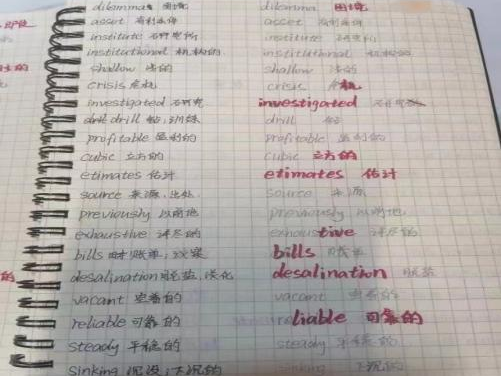 dilemma 困境 dilemma 困境
asset 有利条件 asset 有利条件
institute 研究所 institute 研究所
institutional 机构的 institutional 机构的
shallow 浅的 shallow 浅的
crisis 危机 crisis 危机
investigated 研究 investigated 研究
drill 钻,训练 drill 钻
profitable 盈利的 profitable 盈利的
cubic 立方的 cubic 立方的
etimates 估计 etimates 估计
source 来源,出处 source 来源
previously 以前地 previously 以前地
exhaustive 详尽的 exhaustive 详尽的
bills 账单 bills 账单
desalination 脱盐,淡化 desalination 脱盐
vacant 空着的 vacant 空着的
reliable 可靠的 reliable 可靠的
steady 平稳的 steady 平稳的
sinking 沉没,下沉的 sinking 下沉的